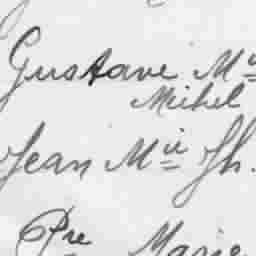 Gustave Mie
Michel
Jean Mie Jh.
Pre Marie